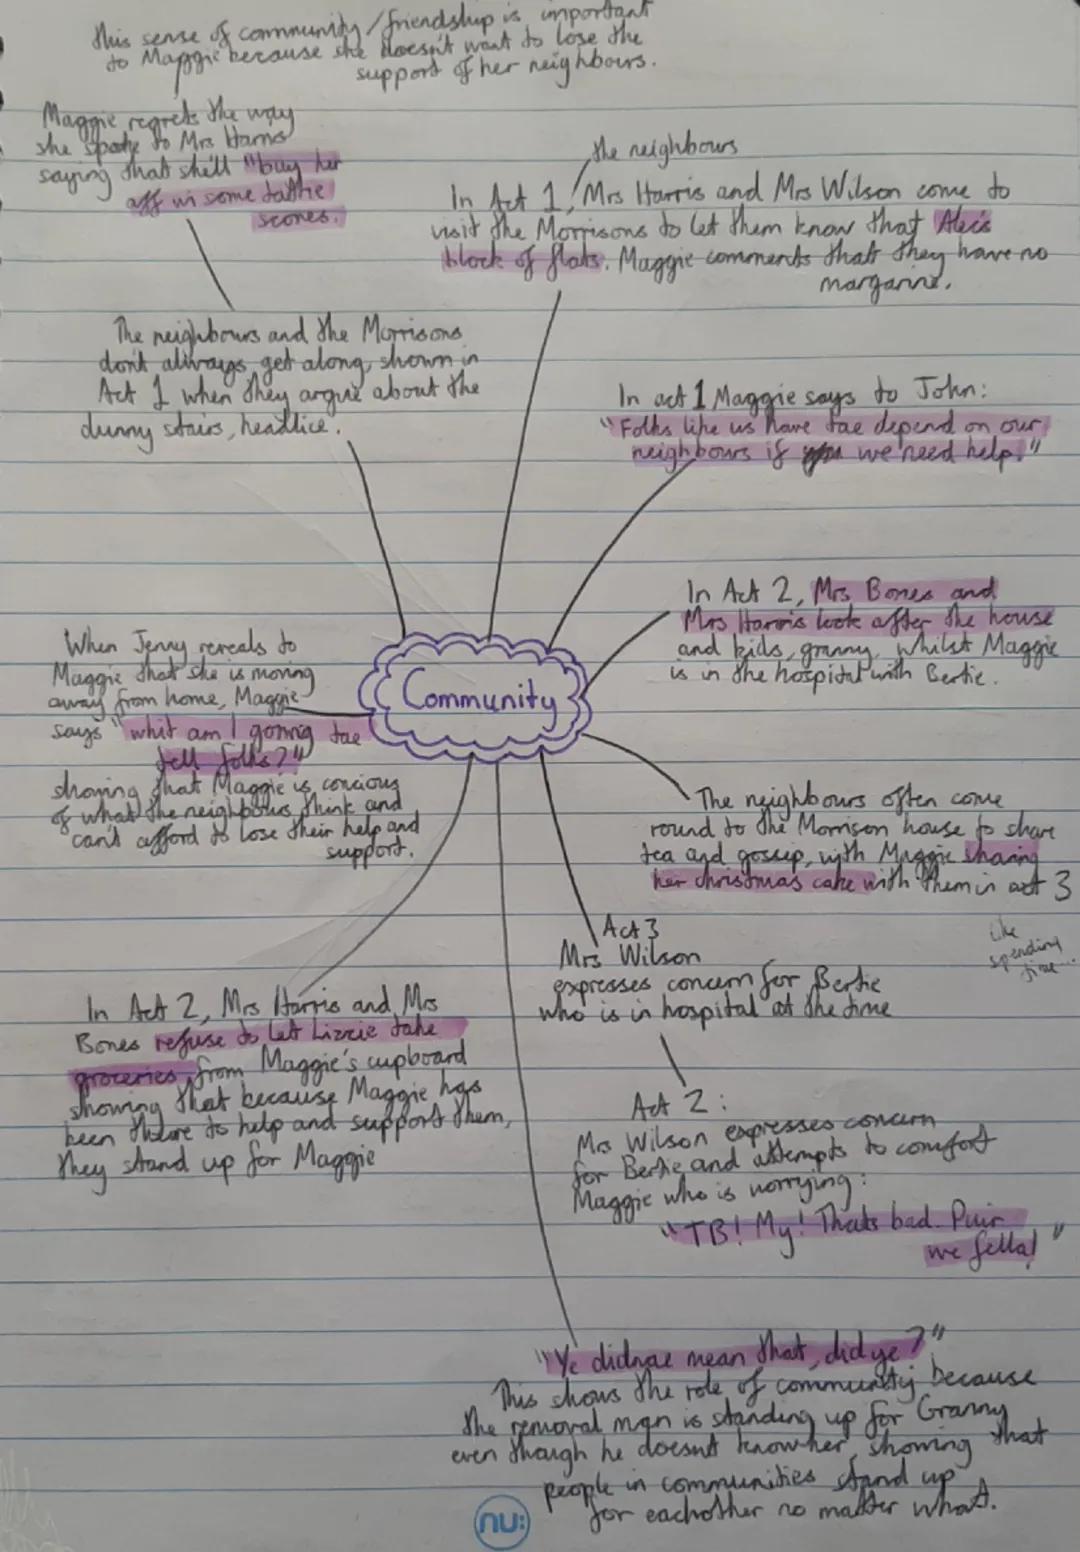 this sense of community/friendship is important
to Maggie because she doesn't want to lose the
support of her neighbours.
Maggie regrets the way
she spoke to Mrs Harris
saying that she'll "buy her
aff wi some tattie
scones.
the neighbours
In Act 1, Mrs Harris and Mrs Wilson come to
visit the Morrisons to let them know that Alec's
block of flats. Maggie comments that they have no
margarine.
The neighbours and the Morrisons
don't always get along, shown in
Act 1 when they argue about the
dunny stairs, headlice.
In act 1 Maggie says to John:
"Folks like us have tae depend on our
neighbours if we need help."
In Act 2, Mrs Bones and
Mrs Harris look after the house
and kids, granny, whilst Maggie
is in the hospital with Bertie.
When Jenny reveals to
Maggie that she is moving
away from home, Maggie
says "whit am I gonnig tae
tell folks?"
showing that Maggie is concious
of what the neighbours think and
can't afford to lose their help and
support.
Community
The neighbours often come
round to the Morrison house to share
tea and gossip, with Maggie sharing
her christmas cake with them in act 3
like
spending
time...
Act 3
Mrs Wilson
expresses concern for Bertie
who is in hospital at the time
In Act 2, Mrs Harris and Mrs
Bones refuse to let Lizzie take
groceries from Maggie's cupboard
showing that because Maggie has
been there to help and support them,
they stand up for Maggie
Act 2:
Mrs Wilson expresses concern
for Bertie and attempts to comfort
Maggie who is worrying:
"TB! My! Thats bad. Puir
wee fella!"
"Ye didnae mean that, did ye?"
This shows the role of community because
the removal man is standing up for Granny
even though he doesnt know her, showing that
people in communities stand up
for eachother no matter what.
nu: